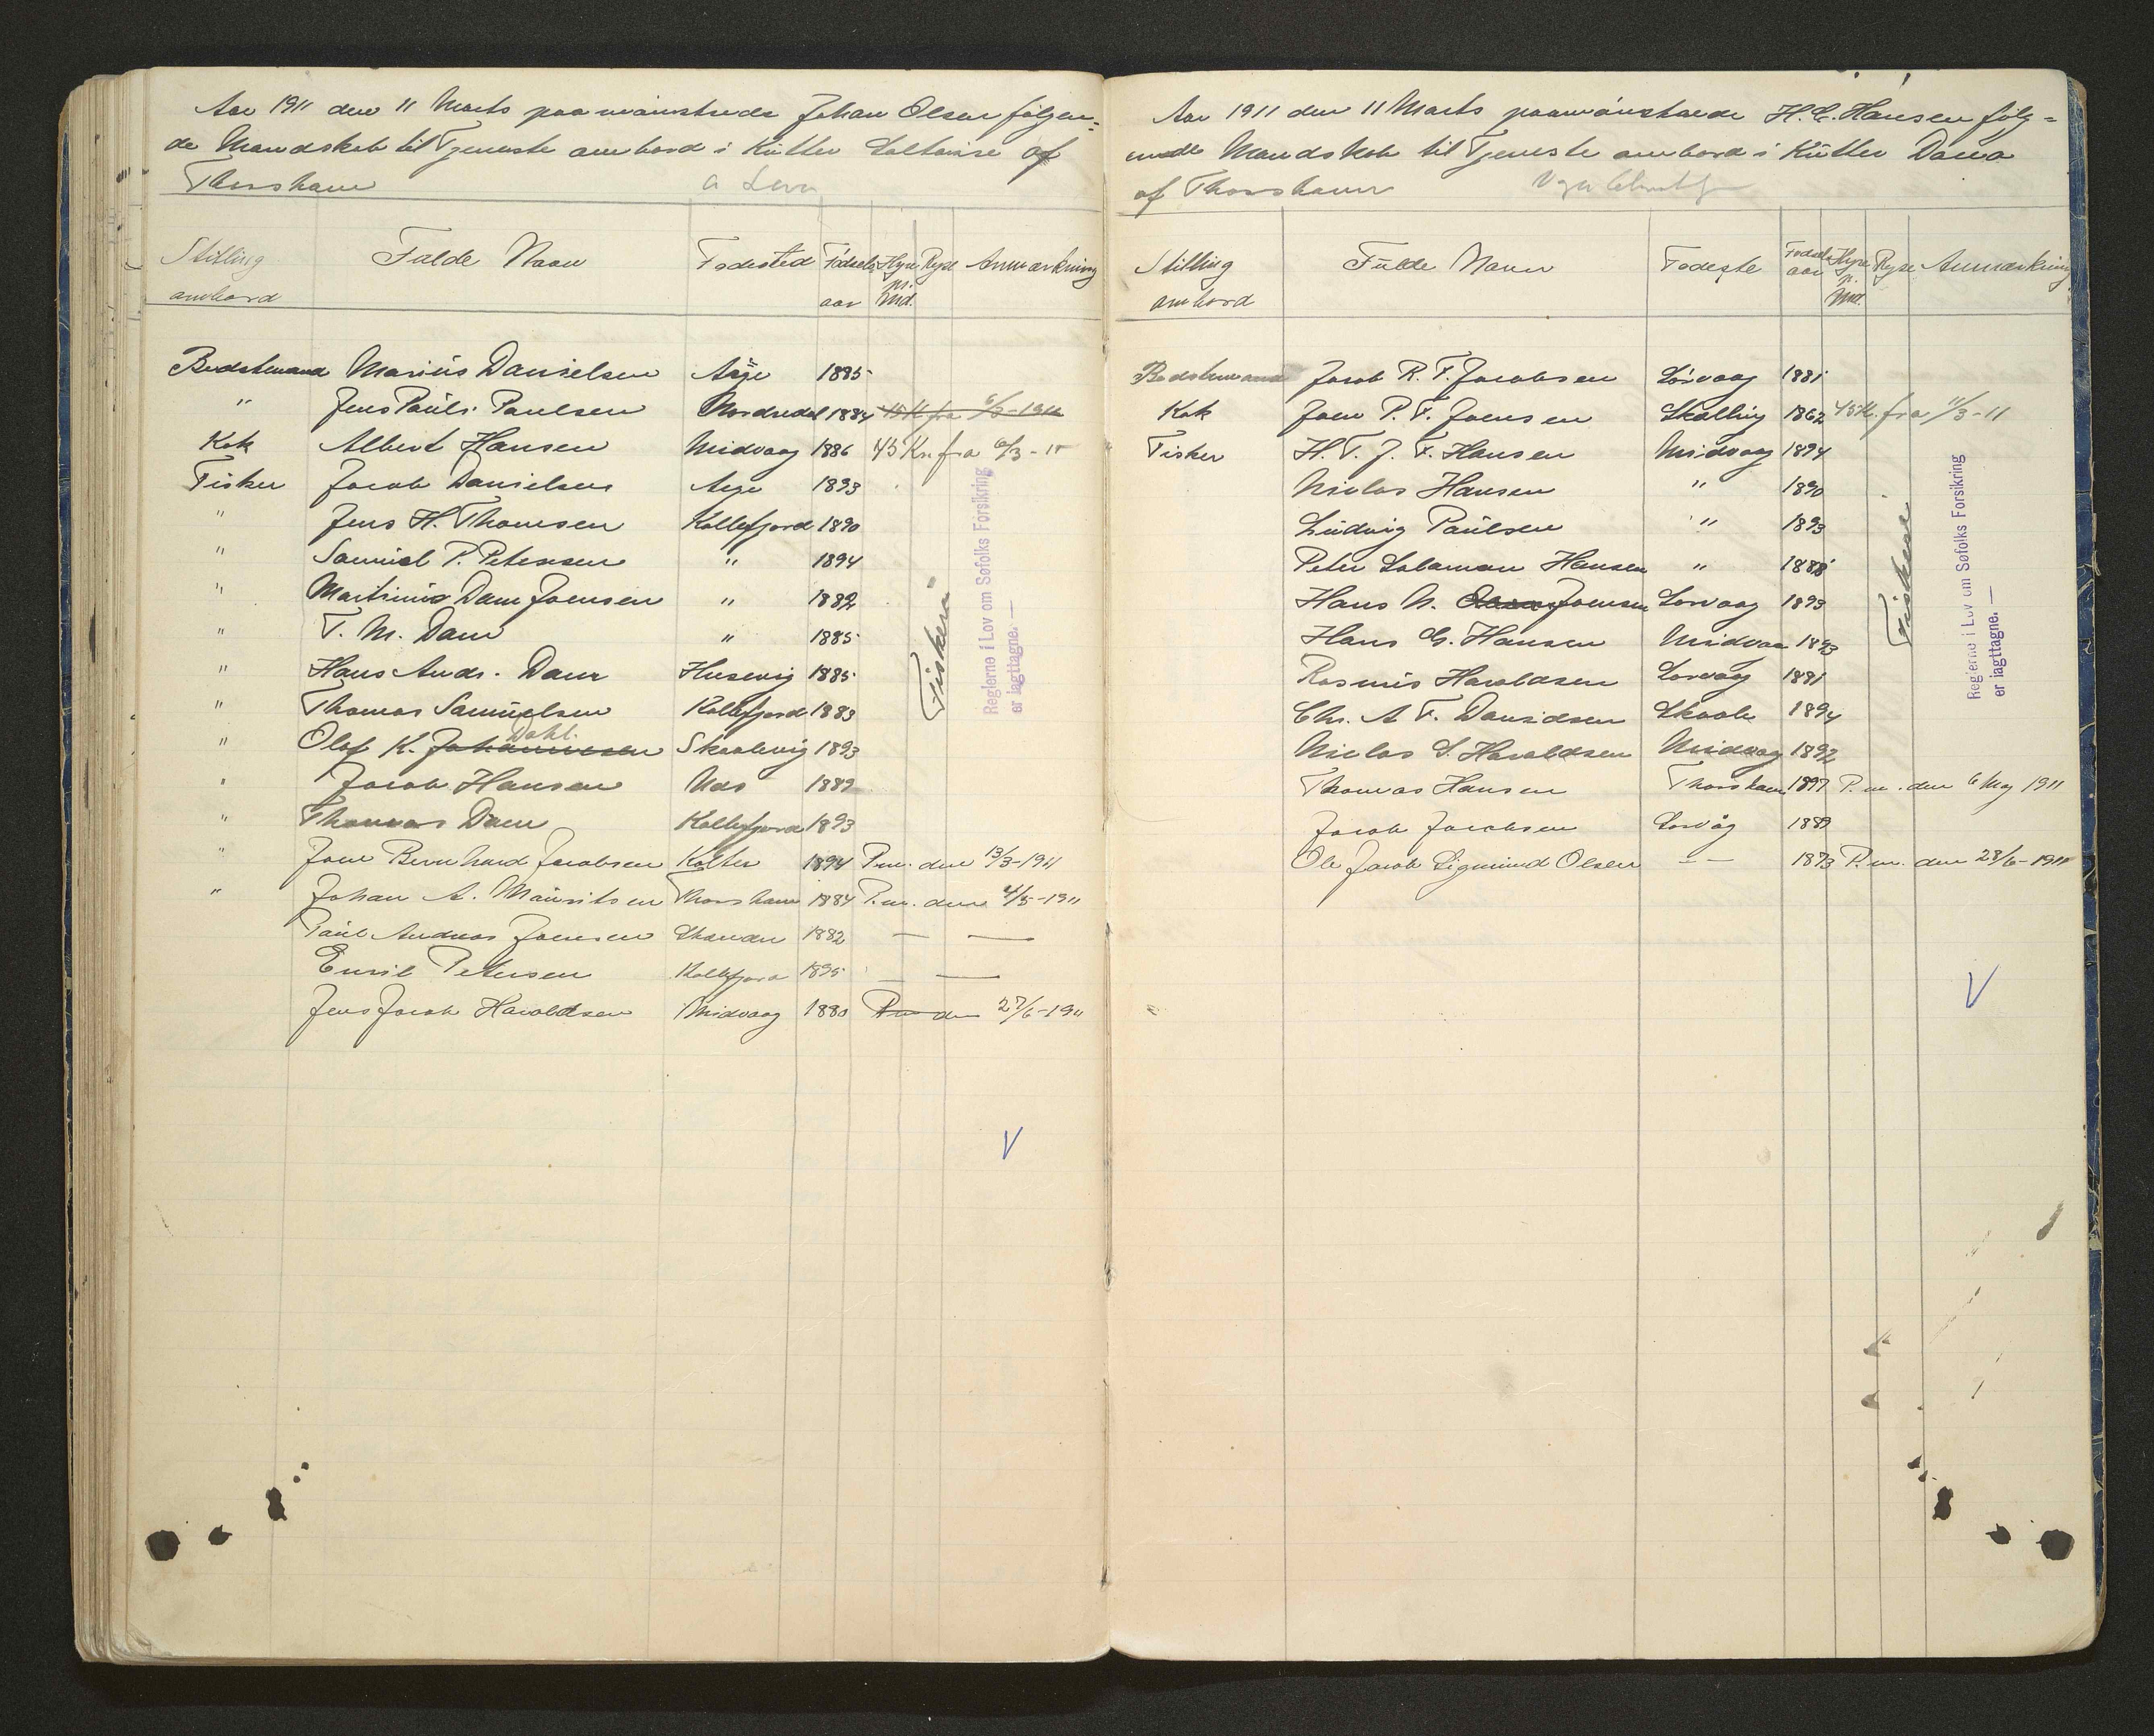 Aar 1911 den 11 Marts paamønstrede Johan Olsen følgen=
de Mandskab til Tjeneste ombord i Kutter Voltaire af
Thorshavn
Stilling ombord Fulde Navn Fødested Fødsels aar Hyre pr. Md. Rejse Anmærkning
Bedstemand Marius Danielsen Arge 1885
" Jens Pauli Paulsen Nordredal 1884 45 K fra 6/3-1911
Kok Albert Hansen Midvaag 1886 45 Kr. fra 6/3-11
Fisker Jacob Danielsen Arge 1893
" Jens H. Thomsen Kollefjord 1890
" Samuel P. Petersen " 1894
" Martinus Dam Joensen " 1882
" T. M. Dam " 1885
" Hans Andr. Dam Husevig 1885
" Thomas Samuelsen Kollefjord 1883
" Olaf K. Johannesen Dahl. Skaalevig 1893
" Jacob Hansen Næs 1889
" Thomas Dam Kollefjord 1893
" Joen Bernhard Jacobsen Kolter 1894 P.m. den 13/3-1911
" Johan A. Mauritsen Thorshavn 1884 P.m. den 4/5-1911
Paul Andreas Joensen 1882 — —
Emil Petersen Kollefjord 1895 — —
Jens Jacob Haraldsen Midvaag 1880 P.m. den 27/6-1911
Fiskeri
Reglerne i Lov om Søfolks Forsikring
er iagttagne. —
V
Aar 1911 den 11 Marts paamønstrede H. C. Hansen følg=
ende Mandskab til Tjeneste ombord i Kutter Dana
af Thorshavn
Stilling ombord Fulde Navn Fødeste Fødsels aar Hyre p. Md. Rejse Anmærkning
Bedstemand Jacob R. F. Jacobsen Sørvaag 1881
Kok Joen P. F. Joensen Skælling 1862 45 K. fra 11/3-11
Fisker H. T. J. F. Hansen Midvaag 1894
Niclas Hansen " 1890
Ludvig Paulsen " 1893
Peter Salamon Hansen " 1888
Hans N. Joensen Sørvaag 1893
Hans G. Hansen Midvaa 1893
Rasmus Haraldsen Sørvaag 1891
Chr. A F. Davidsen Skaale 1894
Niclas S. Haraldsen Midvaag 1892
Thomas Hansen Thorshavn 1897 P.m. den 6 Maj 1911
Jacob Jacobsen Sørvåg 1889
Ole Jacob Sigmund Olsen — — 1873 P.m. den 28/6-1911
Fiskeri
Reglerne i Lov om Søfolks Forsikring
er iagttagne. —
V